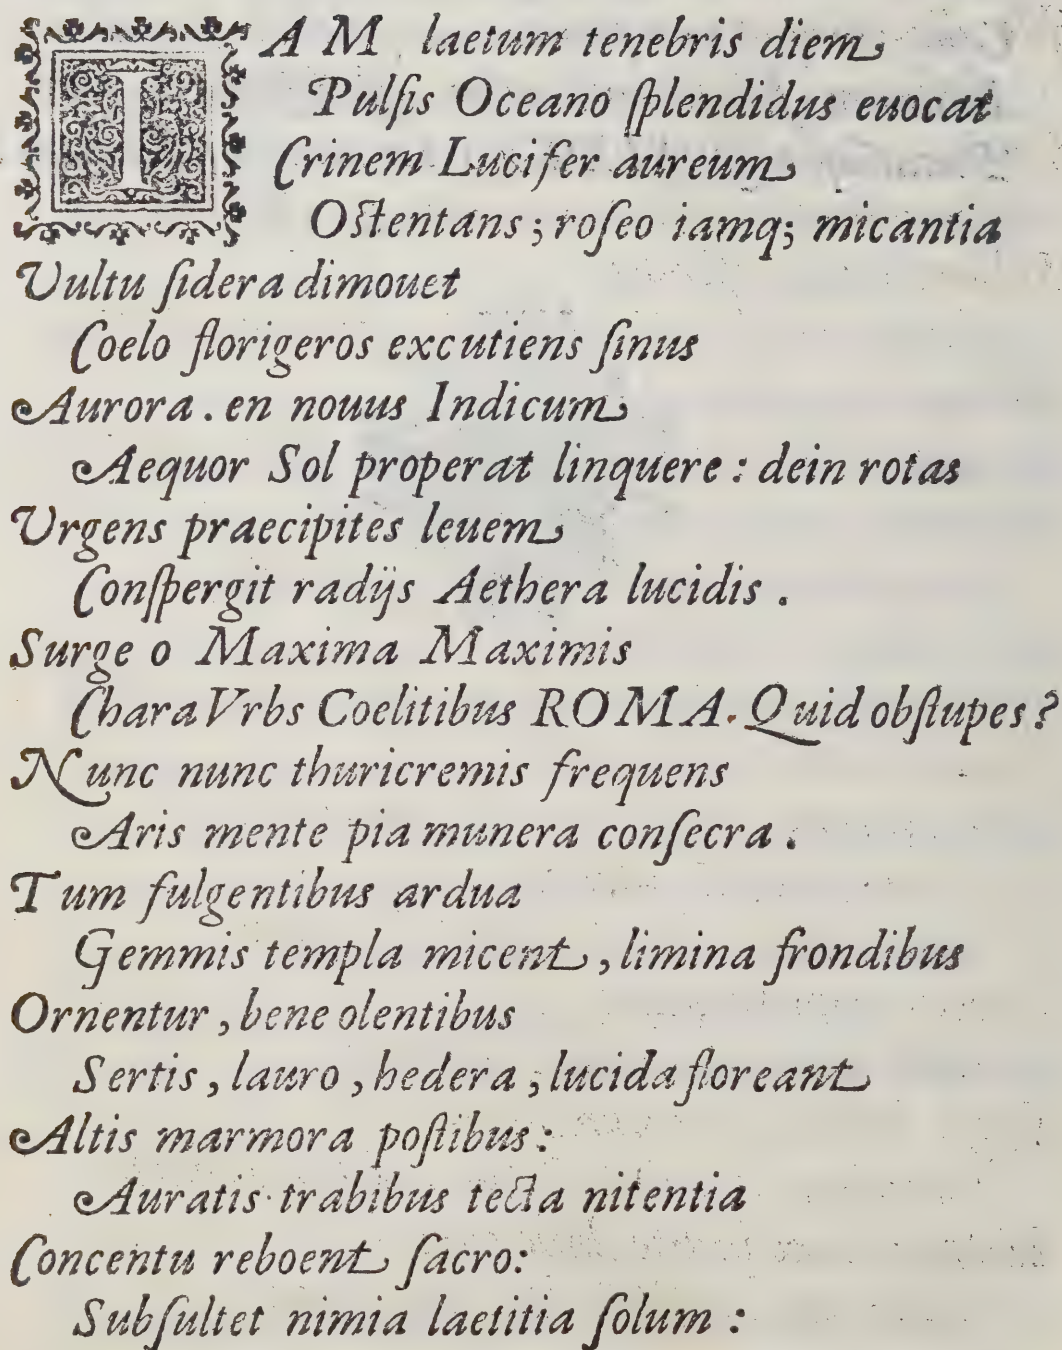 IAM laetum tenebris diem
Pulſis Oceano ſplendidus euocat
Crinem Lucifer aureum
Oſtentans; roſeo iamq; micantia
Vultu ſidera dimouet
Coelo florigeros excutiens ſinus
Aurora. en nouus Indicum
Aequor Sol properat linquere: dein rotas
Vrgens praecipites leuem
Conſpergit radijs Aethera lucidis.
Surge o Maxima Maximis
Chara Vrbs Coelitibus ROMA. Quid obſtupes?
Nunc nunc thuricremis frequens
Aris mente pia munera conſecra.
Tum fulgentibus ardua
Gemmis templa micent, limina frondibus
Ornentur, bene olentibus
Sertis, lauro, hedera, lucida floreant
Altis marmora poſtibus:
Auratis trabibus tecta nitentia
Concentu reboent ſacro:
Subſultet nimia laetitia ſolum: